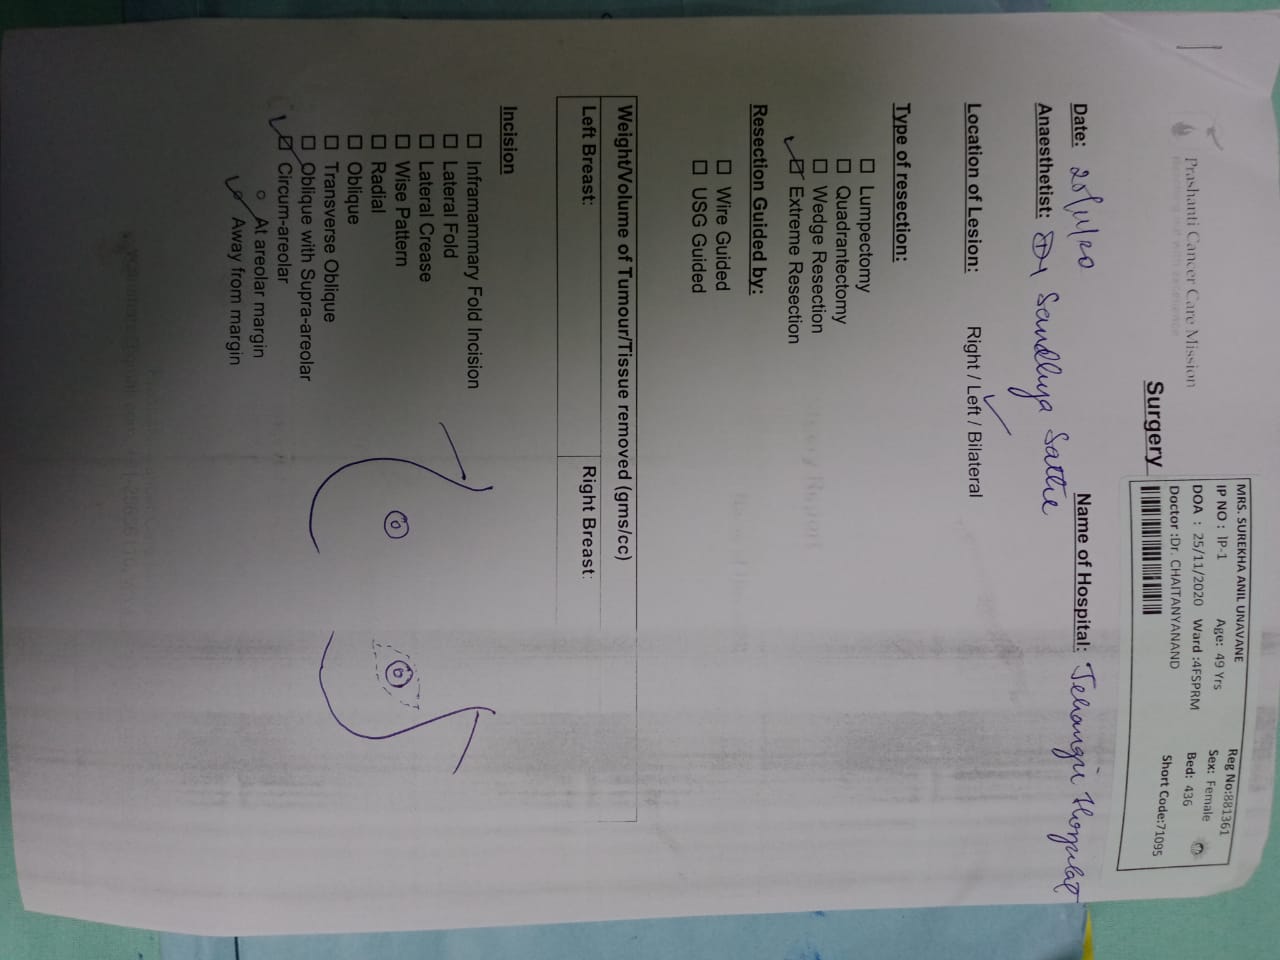 Prashanti Cancer Care Mission
MRS. SUREKHA ANIL UNAVANE Reg No:881361
IP NO : IP-1 Age: 49 Yrs Sex: Female
DOA : 25/11/2020 Ward :4FSPRM Bed: 436
Doctor :Dr. CHAITANYANAND Short Code:71095
Surgery
Date: Name of Hospital: Jehangir Hospital
Anaesthetist: Dr Sandhya Sathe
Location of Lesion: Right / Left / Bilateral
Type of resection:
☐ Lumpectomy
☐ Quadrantectomy
☐ Wedge Resection
☑ Extreme Resection
Resection Guided by:
☐ Wire Guided
☐ USG Guided
Weight/Volume of Tumour/Tissue removed (gms/cc)
Left Breast: Right Breast:
Incision
☐ Inframammary Fold Incision
☐ Lateral Fold
☐ Lateral Crease
☐ Wise Pattern
☐ Radial
☐ Oblique
☐ Transverse Oblique
☐ Oblique with Supra-areolar
☑ Circum-areolar
○ At areolar margin
○ Away from margin